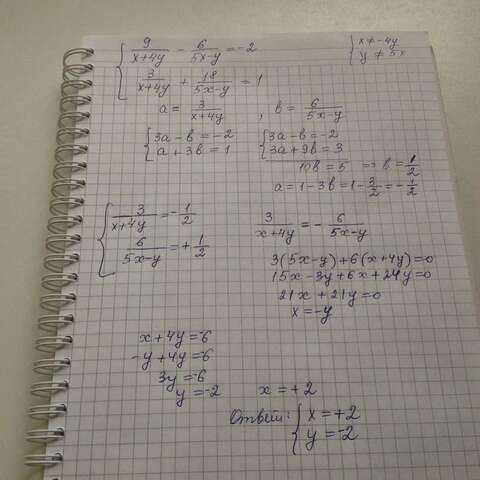 { 9/(x+4y) - 6/(5x-y) = -2
3/(x+4y) + 18/(5x-y) = 1
{ x ≠ -4y
y ≠ 5x
a = 3/(x+4y) , b = 6/(5x-y)
{ 3a - b = -2
a + 3b = 1
{ 3a - b = -2
3a + 9b = 3
10b = 5 => b = 1/2
a = 1 - 3b = 1 - 3/2 = -1/2
{ 3/(x+4y) = -1/2
6/(5x-y) = +1/2
3/(x+4y) = - 6/(5x-y)
3(5x-y) + 6(x+4y) = 0
15x - 3y + 6x + 24y = 0
21x + 21y = 0
x = -y
x + 4y = -6
-y + 4y = -6
3y = -6
y = -2
x = +2
Ответ: { x = +2
y = -2